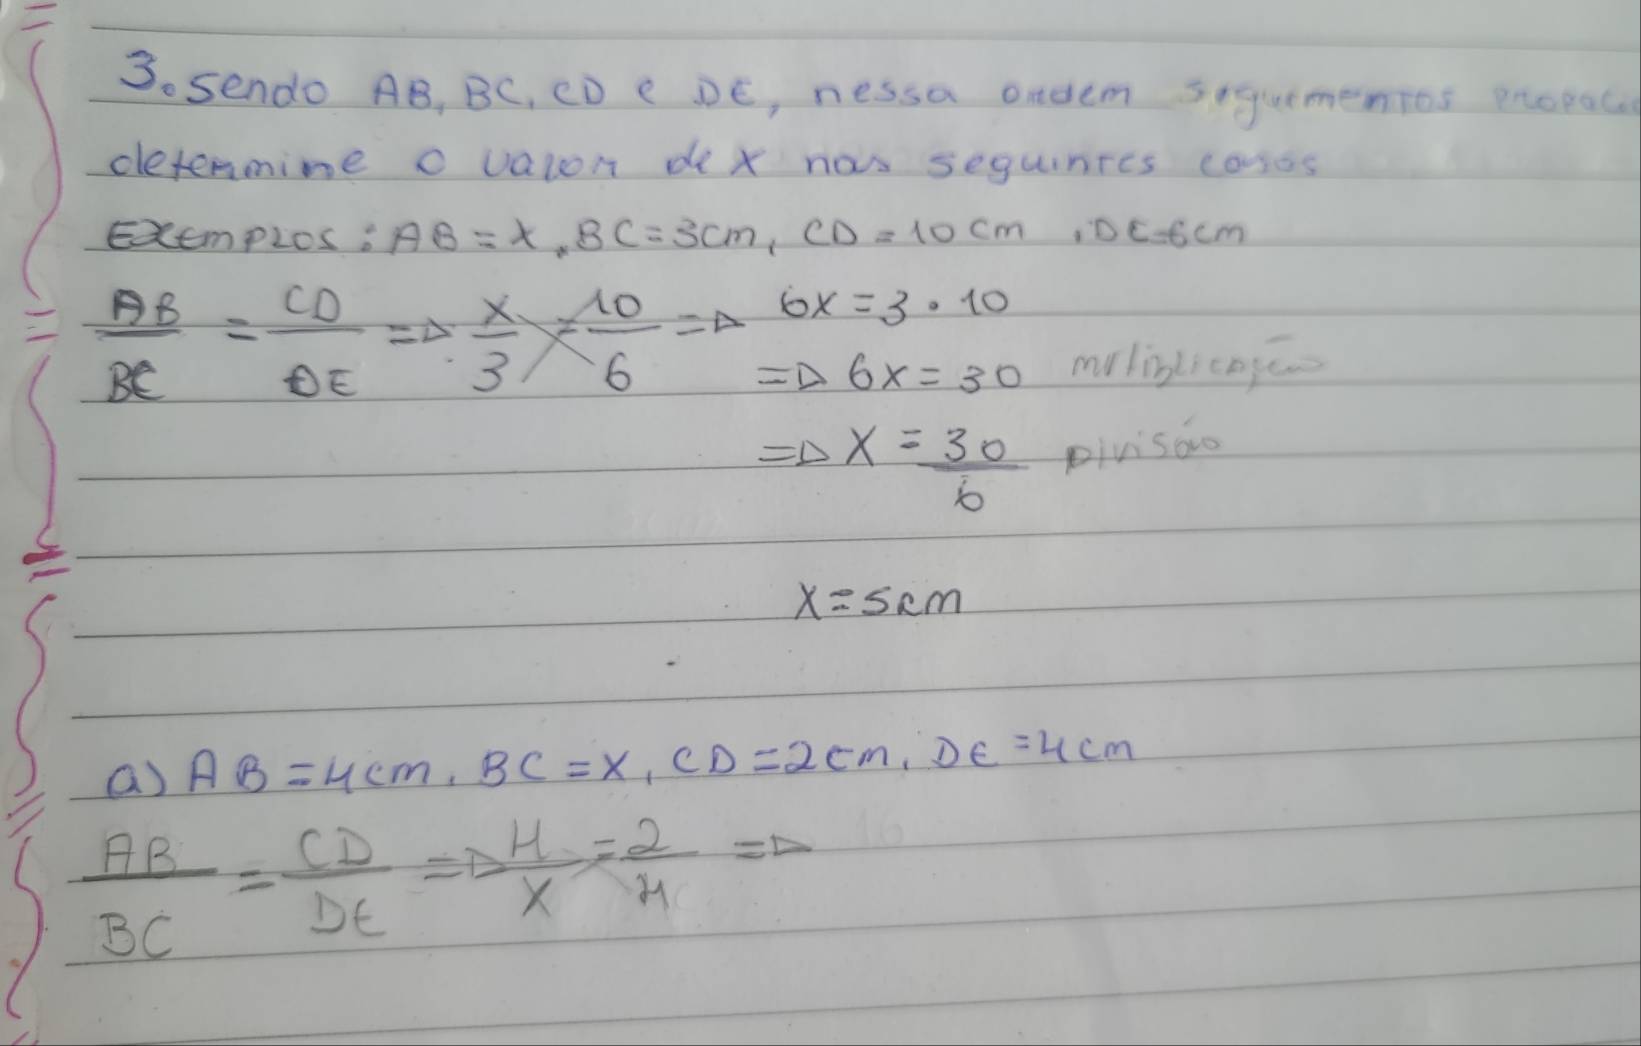 3. Sendo AB, BC, CD e DE, nessa ordem seguimentos
determine o valor de x nas seguintes casos
Exemplos: AB = x, BC = 3cm, CD = 10cm, DE = 6cm
AB/BC = CD/DE => x/3 = 10/6 => 6x = 3 . 10
=> 6x = 30 multiplicação
=> x = 30/6 Divisão
x = 5cm
a) AB = 4cm, BC = x, CD = 2cm, DE = 4cm
AB/BC = CD/DE => 4/x = 2/4 =>